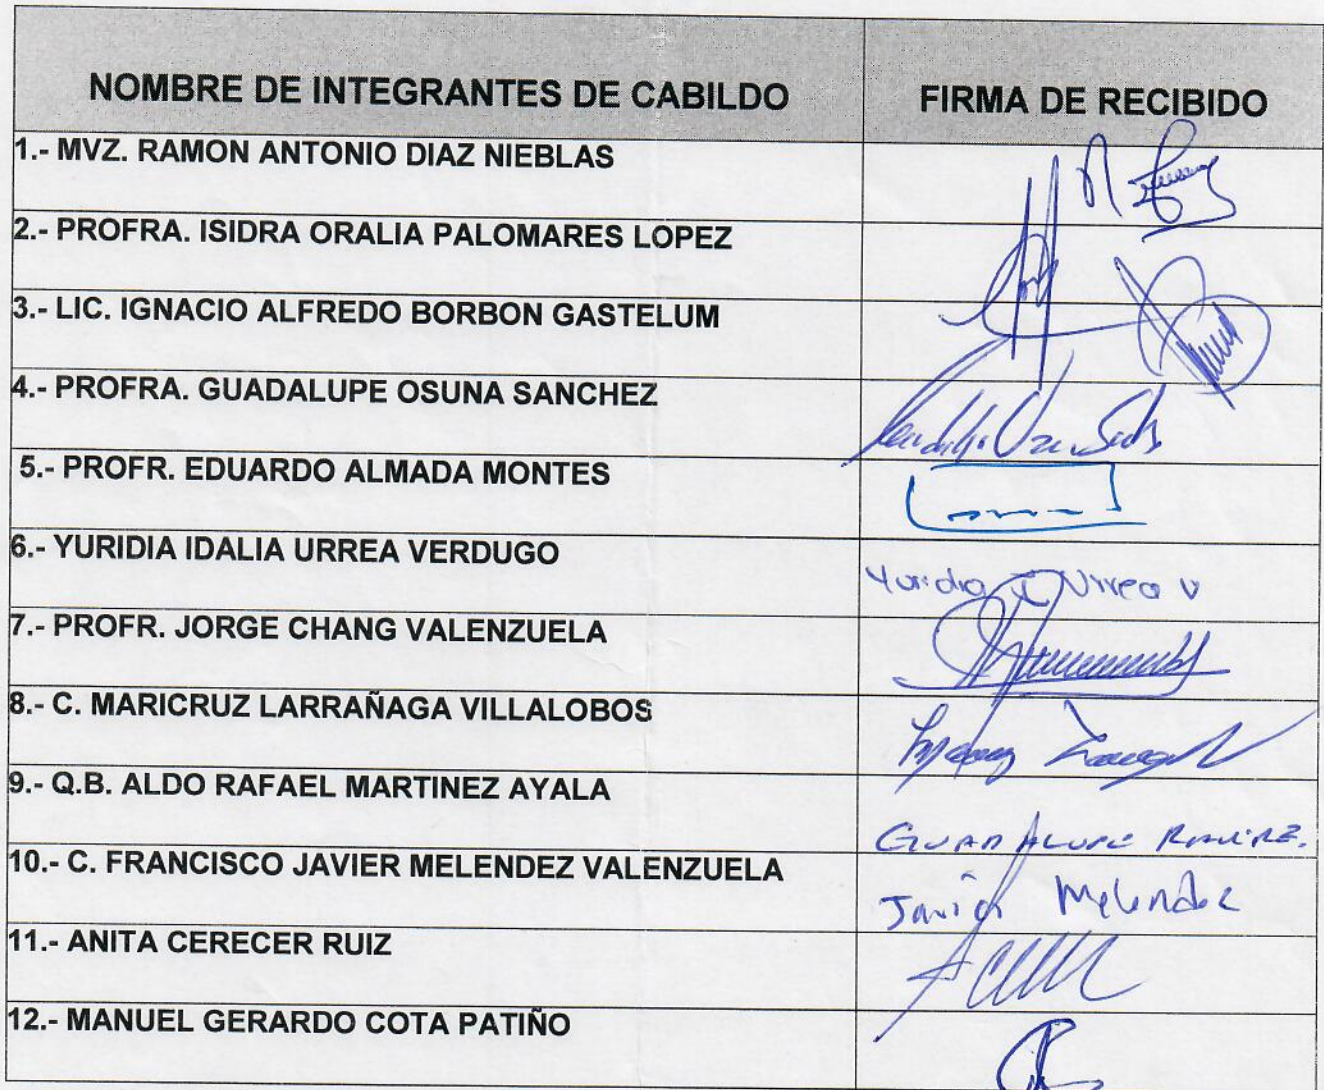 NOMBRE DE INTEGRANTES DE CABILDO FIRMA DE RECIBIDO
1.- MVZ. RAMON ANTONIO DIAZ NIEBLAS
2.- PROFRA. ISIDRA ORALIA PALOMARES LOPEZ
3.- LIC. IGNACIO ALFREDO BORBON GASTELUM
4.- PROFRA. GUADALUPE OSUNA SANCHEZ
5.- PROFR. EDUARDO ALMADA MONTES
6.- YURIDIA IDALIA URREA VERDUGO
Yuridia I Urrea V
7.- PROFR. JORGE CHANG VALENZUELA
8.- C. MARICRUZ LARRAÑAGA VILLALOBOS
9.- Q.B. ALDO RAFAEL MARTINEZ AYALA
GUADALUPE RAMIREZ.
10.- C. FRANCISCO JAVIER MELENDEZ VALENZUELA
Javier Melendez
11.- ANITA CERECER RUIZ
12.- MANUEL GERARDO COTA PATIÑO